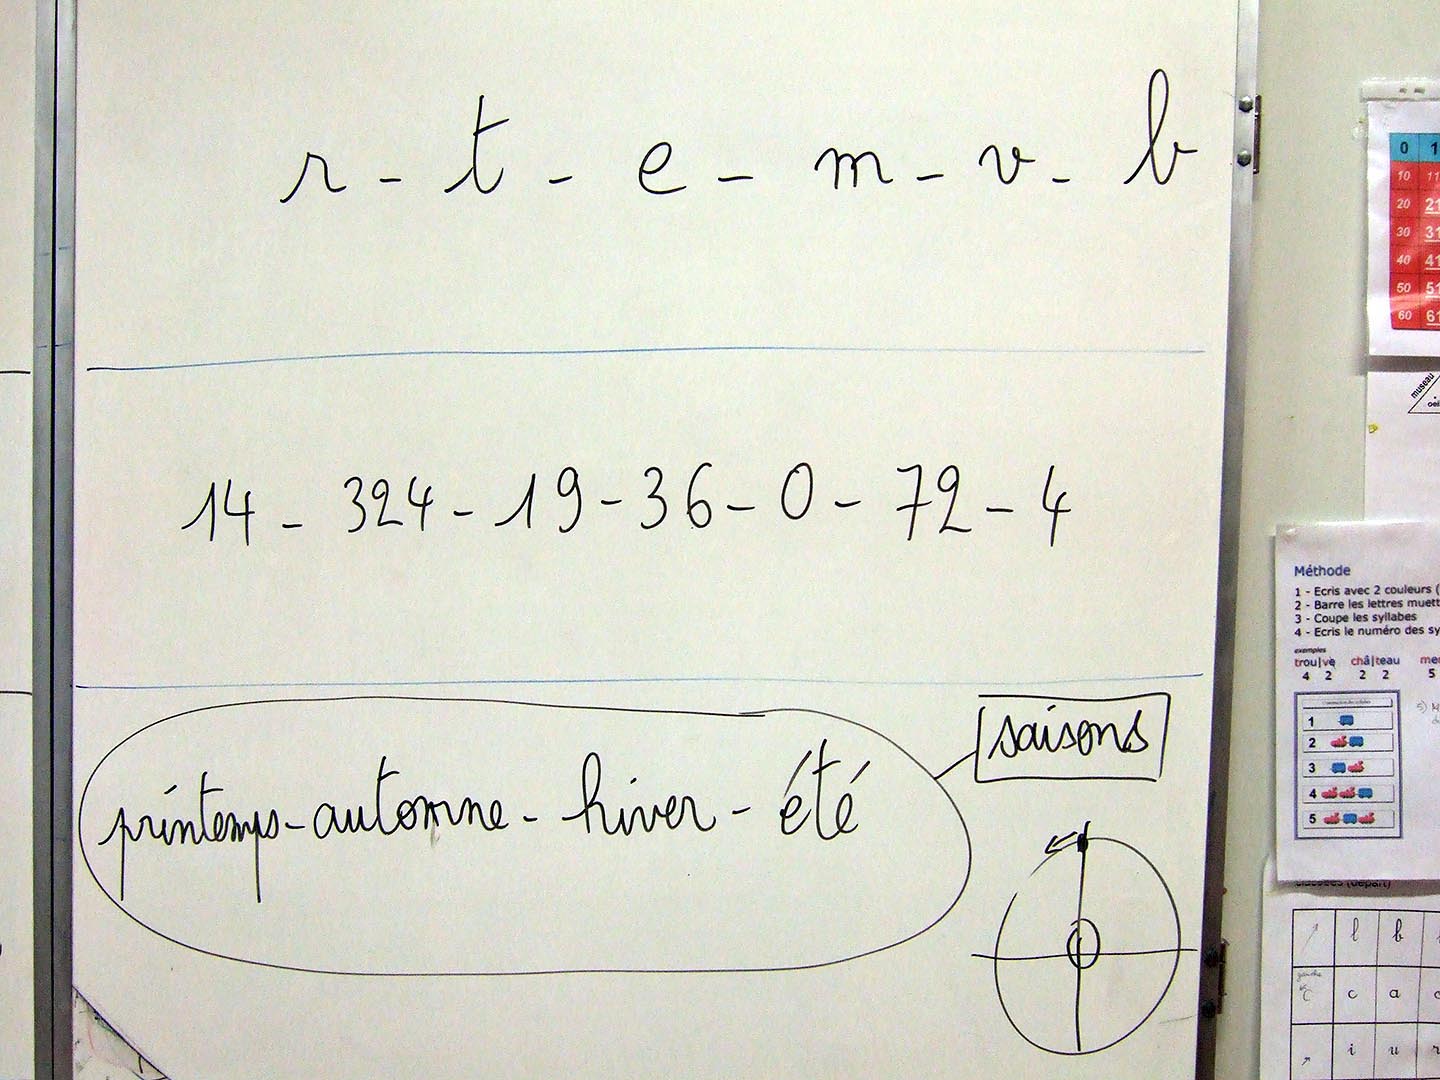 r - t - e - m - v - b
14 - 324 - 19 - 36 - 0 - 72 - 4
saisons
printemps - automne - hiver - été
0 1
10 11
20 21
30 31
40 41
50 51
60 61
museau
Méthode
1 - Ecris avec 2 couleurs (
2 - Barre les lettres muett
3 - Coupe les syllabes
4 - Ecris le numéro des sy
exemples
trou|ve châ|teau
4 2 2 2 5
1
2
3
4
5
classées (départ)
l b
gauche
c c a
i u